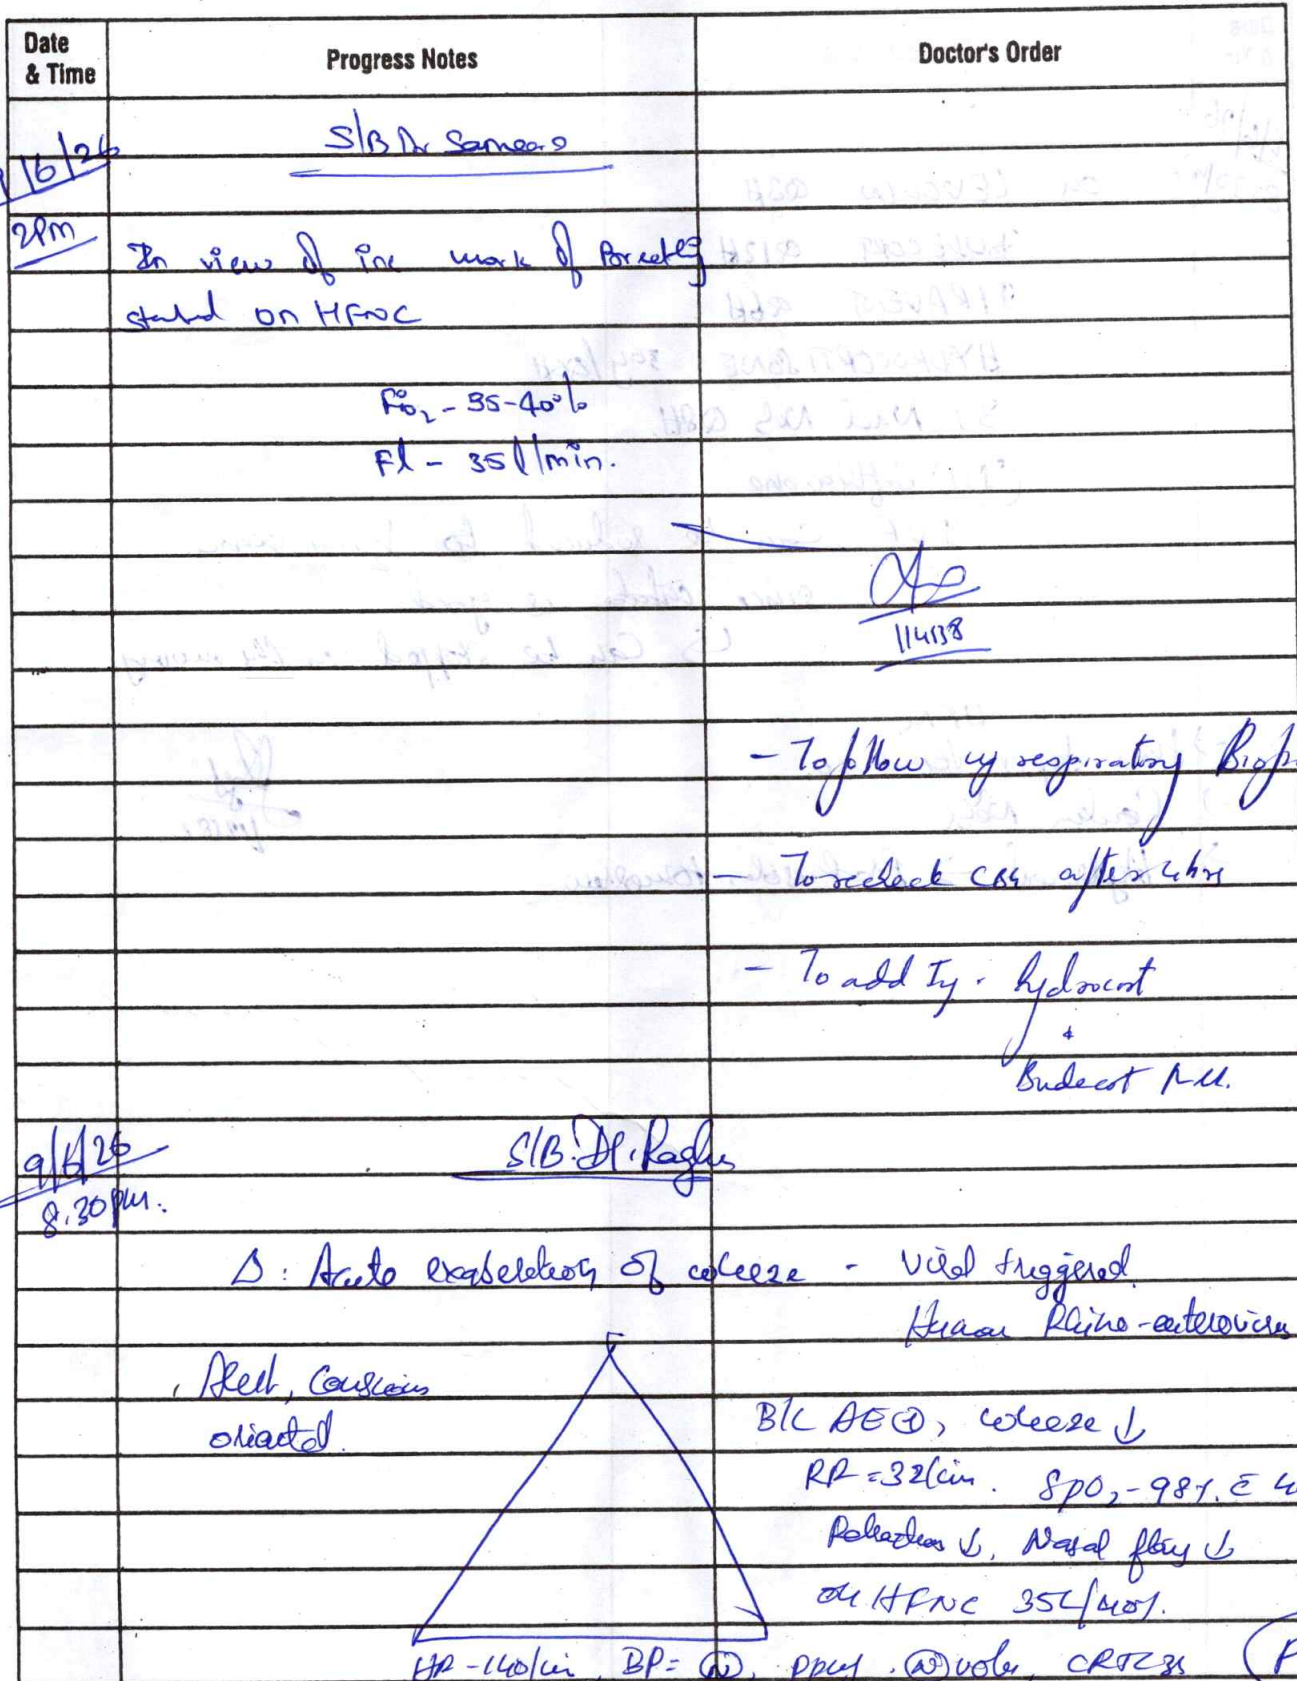 Date & Time
Progress Notes
Doctor's Order
/6/26
S/B Dr Sameer
2PM
In view of inc work of Breathing
started on HFNC
FiO2 - 35-40%
Fl - 35 l/min.
- To follow up respiratory
- To recheck CBG after 4hrs
- To add Inj. hydrocort
+
Budecort
9/6/26
S/B. Dr. Raghu
8.30 pm.
Δ: Acute exacerbation of wheeze - Viral triggered.
Human Rhino-enterovirus
Alert, Conscious
oriented.
B/L AE⊕, wheeze ↓
RR = 32/min. SpO2 - 98%. c̄
Retractions ↓, Nasal flaring ↓
on HFNC 35L/40%.
HR - 140/min, BP = (N), (N) , CRT<3s